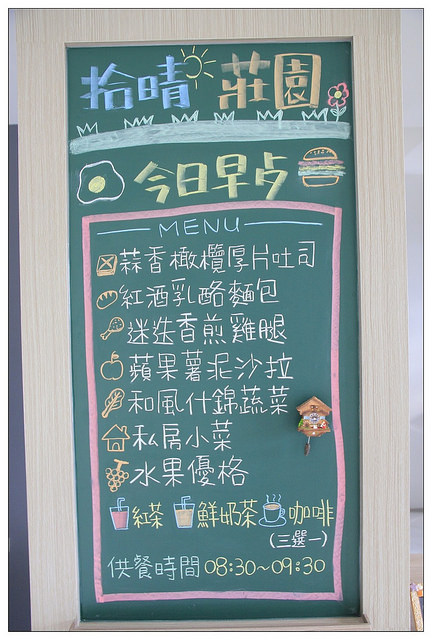 拾晴 莊園
今日早点
MENU
蒜香橄欖厚片吐司
紅酒乳酪麵包
迷迭香煎雞腿
蘋果薯泥沙拉
和風什錦蔬菜
私房小菜
水果優格
紅茶 鮮奶茶 咖啡
(三選一)
供餐時間 08:30~09:30